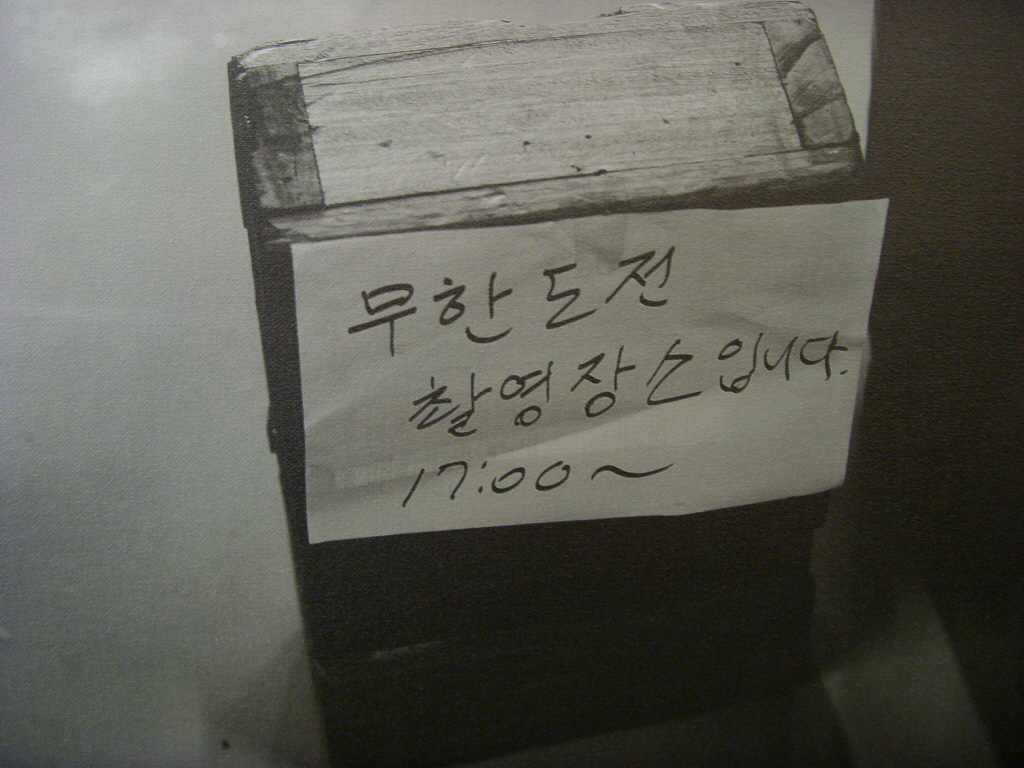 무한도전
촬영장소입니다.
17:00~